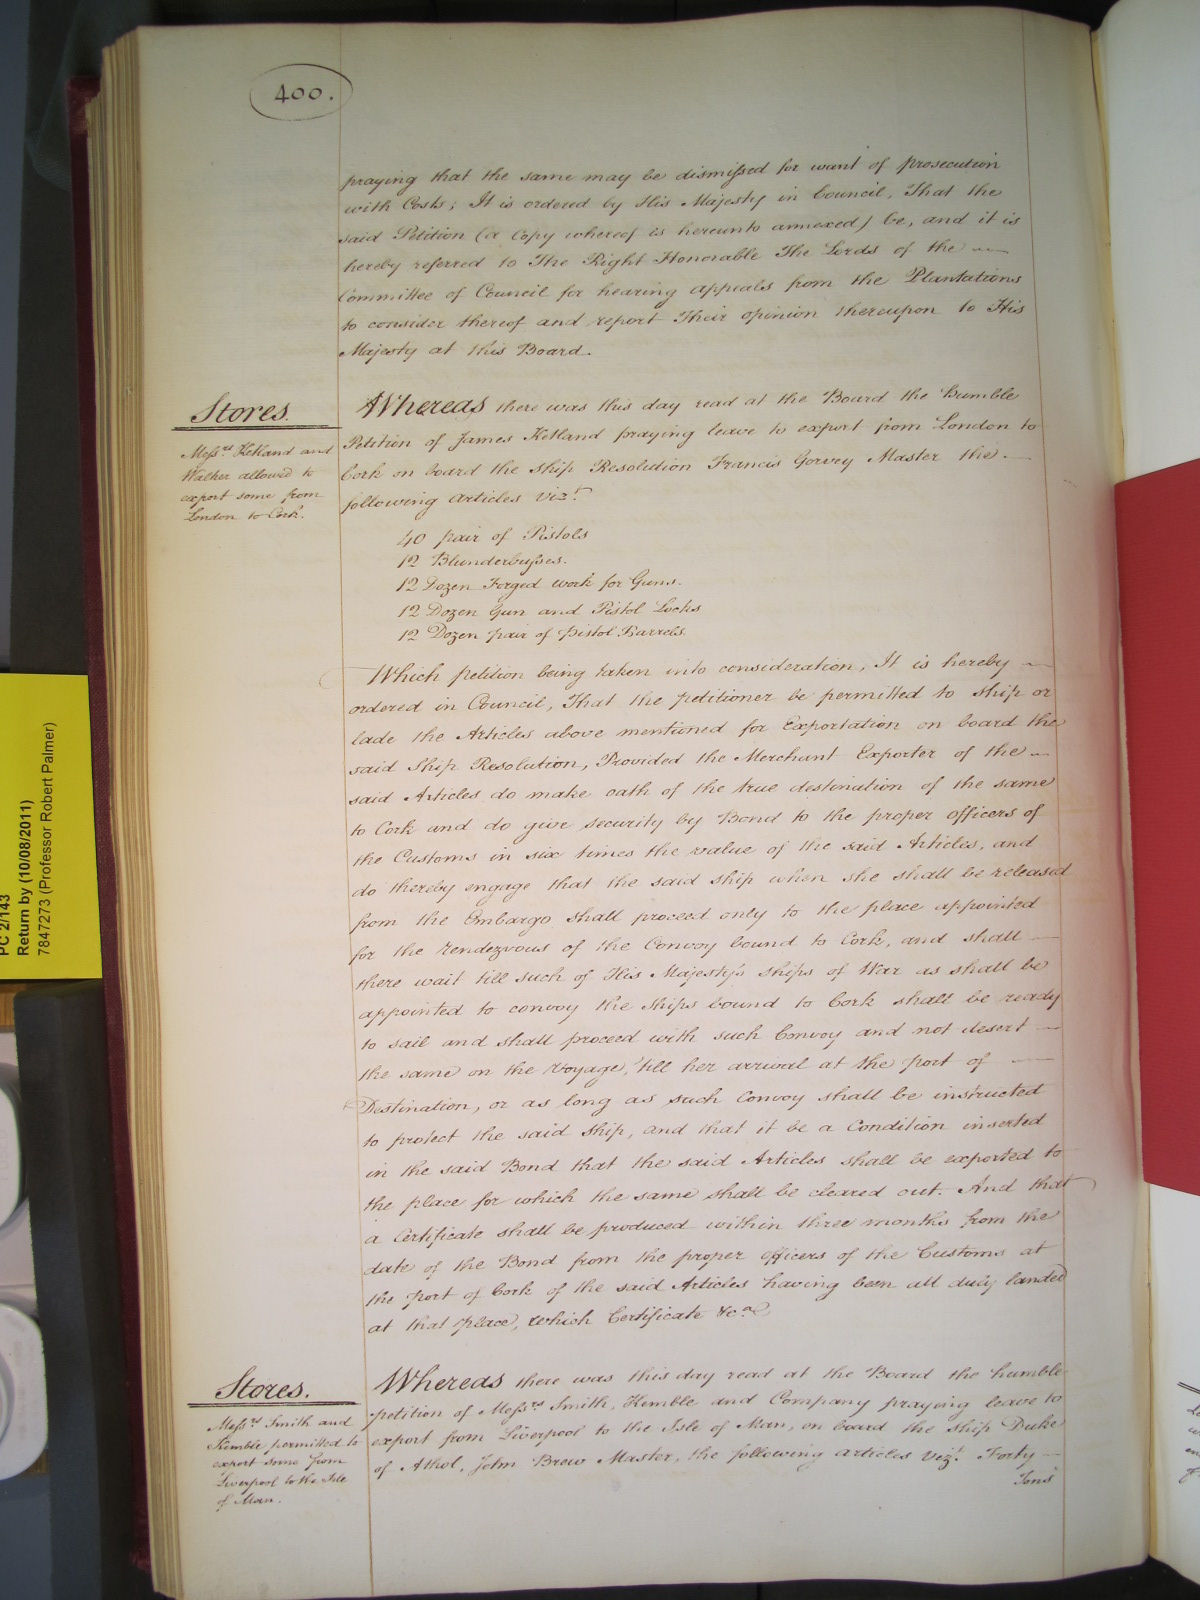 400.
praying that the same may be dismissed for want of prosecution
with Costs; It is ordered by His Majesty in Council, That the
said Petition (a Copy whereof is hereunto annexed) be, and it is
hereby referred to The Right Honorable The Lords of the
Committee of Council for hearing appeals from the Plantations
to consider thereof and report Their opinion thereupon to His
Majesty at this Board.
Stores.
Messrs Ketland and
Walker allowed to
export some from
London to Cork.
Whereas there was this day read at the Board the Humble
Petition of James Ketland praying leave to export from London to
Cork on board the ship Resolution Francis Gorvey Master the
following articles vizt
40 pair of Pistols
12 Blunderbusses.
12 Dozen Forged work for Guns.
12 Dozen Gun and Pistol Locks
12 Dozen pair of pistol Barrels.
Which petition being taken into consideration, It is hereby
ordered in Council, That the petitioner be permitted to ship or
lade the Articles above mentioned for Exportation on board the
said Ship Resolution, Provided the Merchant Exporter of the
said Articles do make oath of the true destination of the same
to Cork and do give security by Bond to the proper officers of
the Customs in six times the value of the said Articles, and
do thereby engage that the said ship when she shall be released
from the Embargo shall proceed only to the place appointed
for the Rendezvous of the Convoy bound to Cork, and shall
there wait till such of His Majesty's ships of War as shall be
appointed to convoy the ships bound to Cork shall be ready
to sail and shall proceed with such Convoy and not desert
the same on the Voyage, 'till her arrival at the port of
Destination, or as long as such Convoy shall be instructed
to protect the said ship, and that it be a Condition inserted
in the said Bond that the said Articles shall be exported to
the place for which the same shall be cleared out. And that
a Certificate shall be produced within three months from the
date of the Bond from the proper officers of the Customs at
the port of Cork of the said Articles having been all duly landed
at that place, which Certificate &ca
Stores.
Messrs Smith and
Kimble permitted to
export some from
Liverpool to the Isle
of Man.
Whereas there was this day read at the Board the humble
petition of Messrs Smith, Kimble and Company praying leave to
export from Liverpool to the Isle of Man, on board the ship Duke
of Athol, John Brew Master, the following articles vizt Forty
Tons
PC 2/143
Return by (10/08/2011)
7847273 (Professor Robert Palmer)